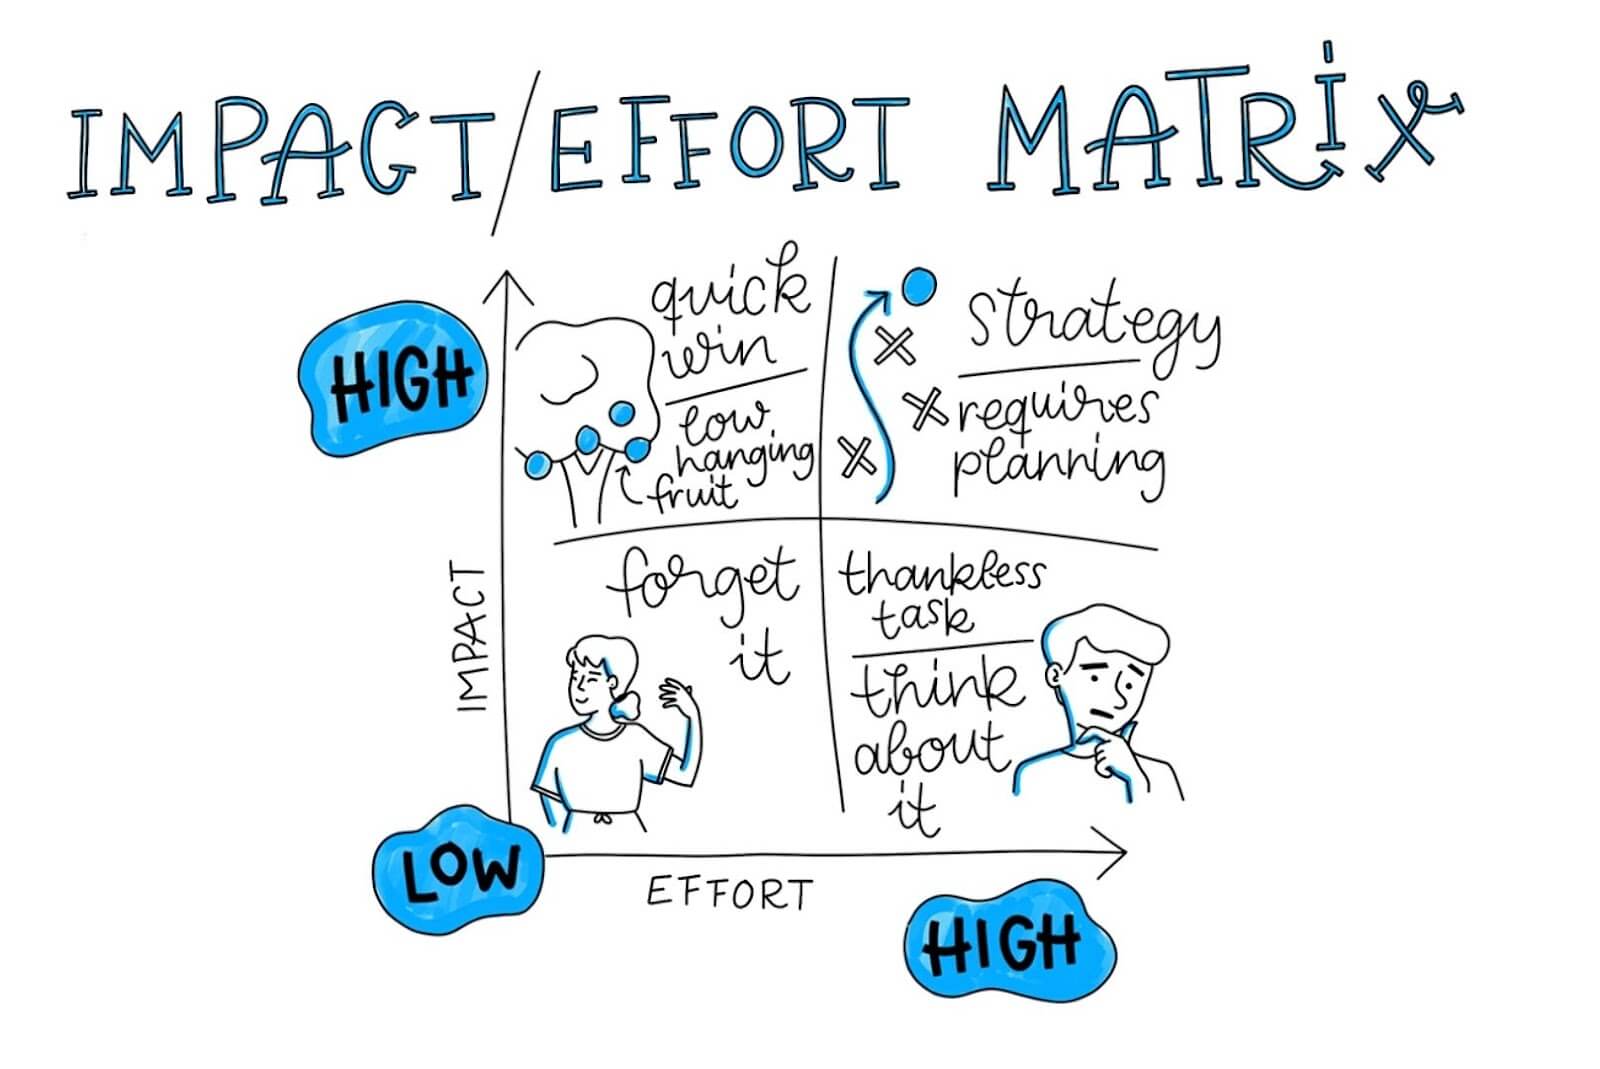 IMPACT/EFFORT MATRIX
HIGH
quick
win
low
hanging
fruit
strategy
requires
planning
IMPACT
forget
it
thankless
task
think
about
it
LOW
EFFORT
HIGH